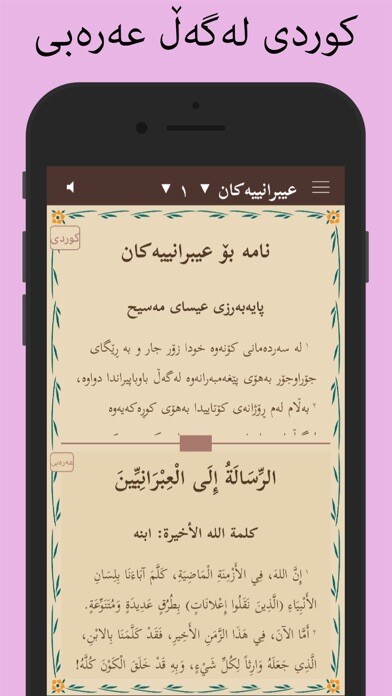 کوردی لەگەڵ عەرەبی
عیبرانییەکان ▼ ١ ▼
کوردی
نامە بۆ عیبرانییەکان
پایەبەرزی عیسای مەسیح
١ لە سەردەمانی کۆنەوە خودا زۆر جار و بە ڕێگای
جۆراوجۆر بەهۆی پێغەمبەرانەوە لەگەڵ باوباپیراندا دواوە،
٢ بەڵام لەم ڕۆژانەی کۆتاییدا بەهۆی کوڕەکەیەوە
عەرەبی
الرِّسَالَةُ إِلَى الْعِبْرَانِيِّينَ
كلمة الله الأخيرة: ابنه
١ إِنَّ اللهَ، فِي الأَزْمِنَةِ الْمَاضِيَةِ، كَلَّمَ آبَاءَنَا بِلِسَانِ
الْأَنْبِيَاءِ (الَّذِينَ نَقَلُوا إِعْلانَاتٍ) بِطُرُقٍ عَدِيدَةٍ وَمُتَنَوِّعَةٍ.
٢ أَمَّا الآنَ، فِي هَذَا الزَّمَنِ الأَخِيرِ، فَقَدْ كَلَّمَنَا بِالابْنِ،
الَّذِي جَعَلَهُ وَارِثاً لِكُلِّ شَيْءٍ، وَبِهِ قَدْ خَلَقَ الْكَوْنَ كُلَّهُ!